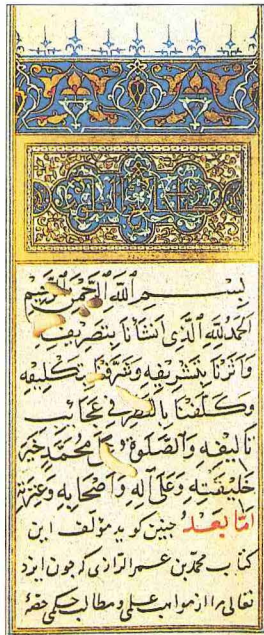 بسم الله الرحمن الرحیم
الحمد لله الذی انشأنا بتصریفه
وآثرنا بتشریفه وشرفنا بتکلیفه
وکلفنا بالنظر فی عجائب
تالیفه والصلوة محمد خیر
خلیقته وعلی آله واصحابه وعترته
اما بعد چنین کوید مؤلف این
کتاب محمد بن عمر الرازی که چون ایزد
تعالی مرا از مواهب علمی و مطالب حکمی حصهٔ